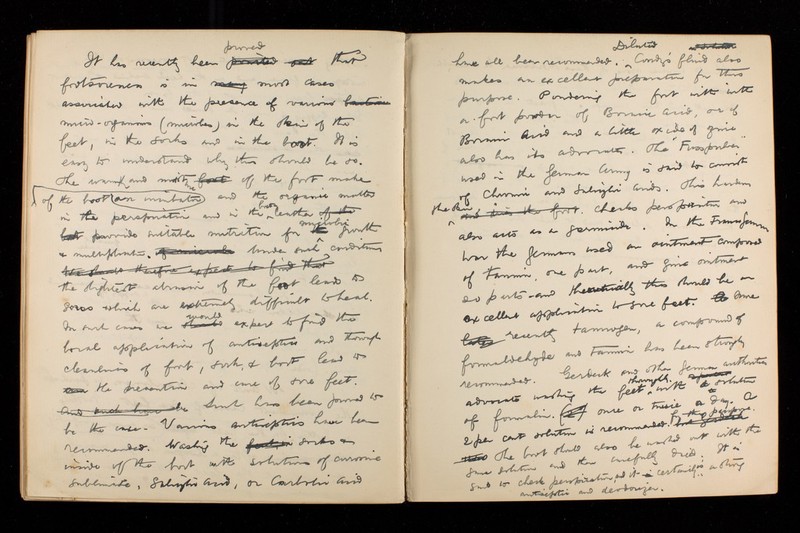 proved
It has recently been pointed out that
footsoreness is in many most cases
associated with the presence of various bacteria
micro-organisms (microbes) in the skin of the
feet, in the socks and in the boot. It is
easy to understand why this should be so.
The warmth and moisture of the foot make
of the boot an incubator, and the organic matter
in the perspiration and in the leather of the
boot provide suitable nutrition for the microbic growth
& multiplication. Under such conditions
we should therefore expect to find that
the slightest abrasion of the foot leads to
sores which are extremely difficult to heal.
In such cases we should would expect to find the
local application of antiseptics and thorough
cleanliness of foot, sock, & boot lead to
the prevention and cure of sore feet.
And such has been proved to
be the case. Various antiseptics have been
recommended. Washing the socks &
inside of the boot with solutions of corrosive
sublimate, Salicylic acid, or Carbolic Acid
have all been recommended. Diluted Condy's fluid also
makes an excellent preparation for this
purpose. Powdering the foot with
a foot powder of Boracic Acid, or of
Boracic Acid and a little oxide of zinc
also has its advocates. The "Fusspulver"
used in the German Army is said to consist
of Chromic and Salicylic Acids. This hardens
the skin, checks perspiration and
also acts as a germicide. In the Franco-German
War the Germans used an ointment composed
of Tannin, one part, and zinc ointment
20 parts - and theoretically this should be an
excellent application to sore feet.
recently tannoform, a compound of
formaldehyde and tannin has been strongly
recommended. Gerbeck and other German authorities
advocate washing the feet thoroughly with a solution
of formalin once or twice a day. A
2 per cent solution is recommended for the purpose.
The boot should also be washed out with the
same solution and then carefully dried. It is
said to check perspiration and it is certainly a strong
antiseptic and deodorizer.